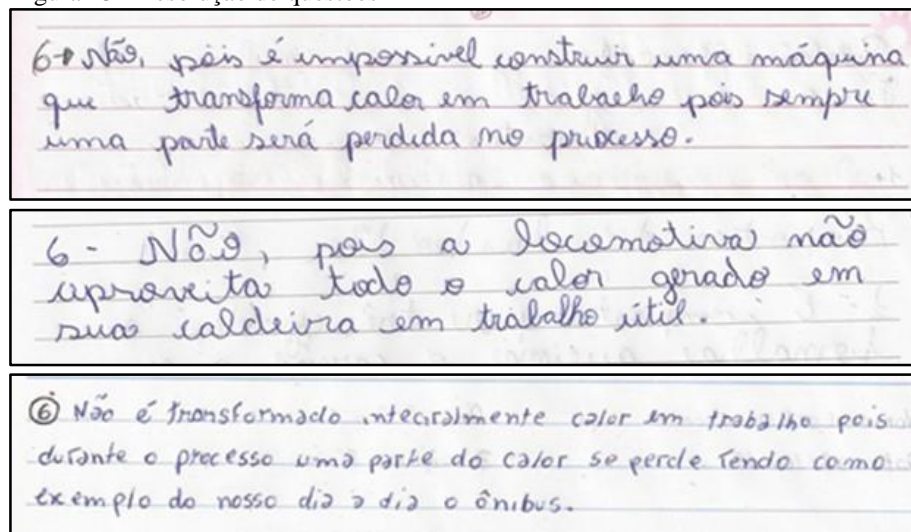 6 Não, pois é impossível construir uma máquina
que transforma calor em trabalho pois sempre
uma parte será perdida no processo.
6 - Não, pois a locomotiva não
aproveita todo o calor gerado em
sua caldeira em trabalho útil.
6 Não é transformado integralmente calor em trabalho pois
durante o processo uma parte do calor se perde tendo como
exemplo do nosso dia a dia o ônibus.